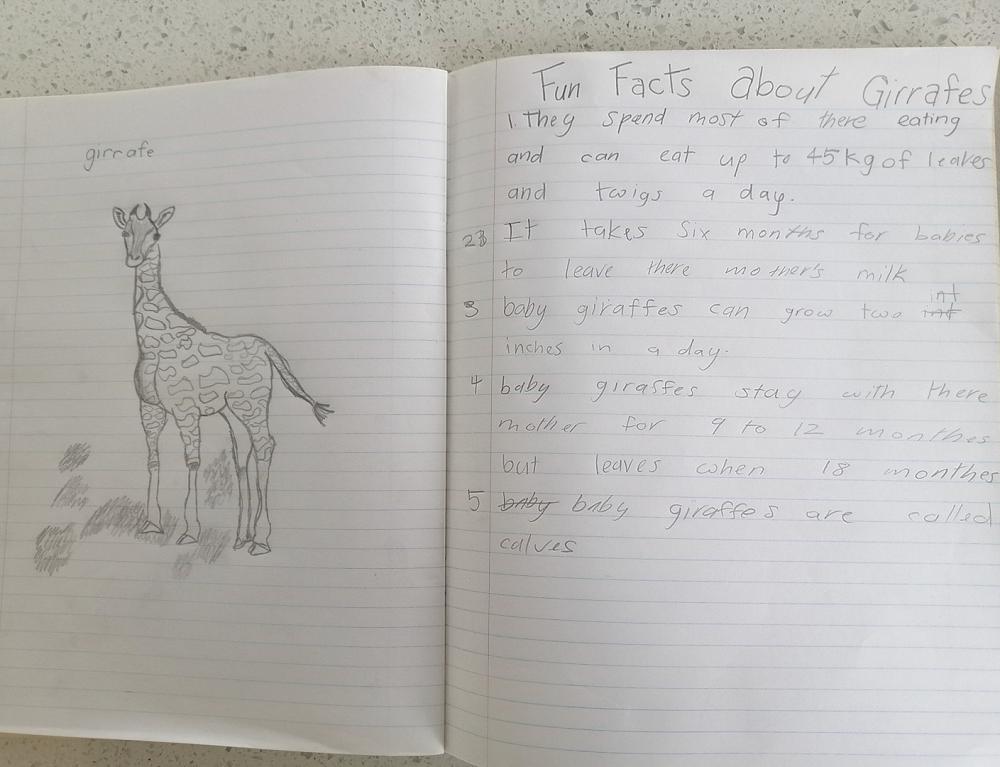 girrafe
Fun Facts about Girrafes
1. They spend most of there eating
and can eat up to 45kg of leaves
and twigs a day.
2 It takes six months for babies
to leave there mother's milk
int
3 baby giraffes can grow two int
inches in a day.
4 baby giraffes stay with there
mother for 9 to 12 monthes
but leaves when 18 monthes
5 baby baby giraffes are called
calves